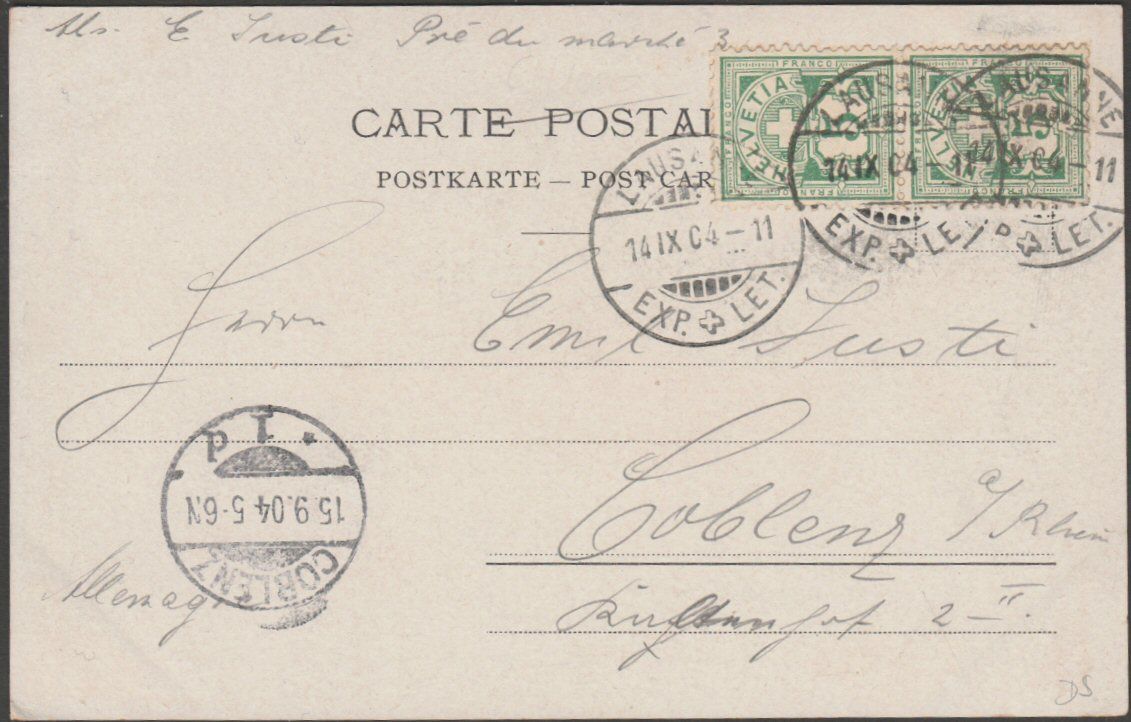 Abs. E Justi Pré du marché 3
CARTE POSTAL
POSTKARTE — POST CAR
FRANCO
HELVETIA
5
FRANCO
FRANCO
HELVETIA
5
FRANCO
LAUSAN
14 IX 04 – 11
EXP. LET.
LAUSA
14 IX 04 – 11
EXP. LE
LAUSANNE
14 IX 04 – 11
P LET.
Herrn Emil Justi
Coblenz a/Rhein
2 II.
Allemagne
COBLENZ
15.9.04 5-6N
* 1 d
DS